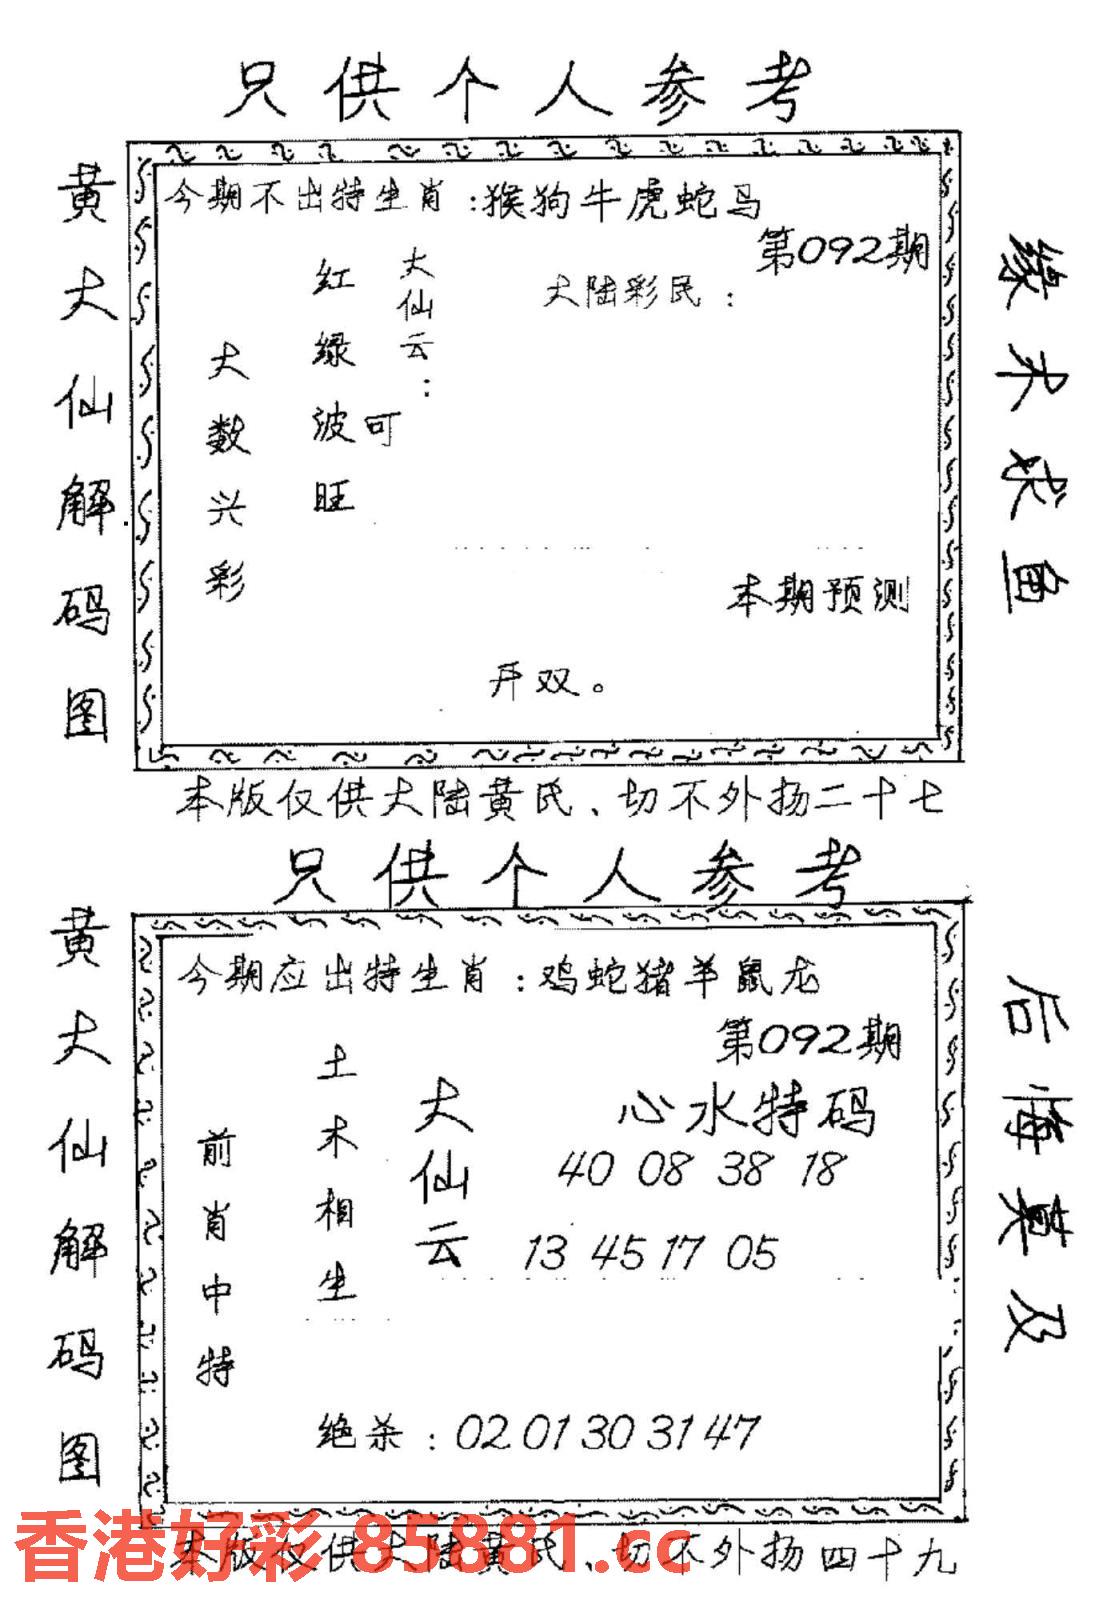 只供个人参考
黄大仙解码图
今期不出特生肖:猴狗牛虎蛇马
第092期
大陆彩民:
大仙云:
可
红绿波旺
大数兴彩
本期预测
开双。
缘木求鱼
本版仅供大陆黄氏、切不外扬二十七
只供个人参考
黄大仙解码图
今期应出特生肖:鸡蛇猪羊鼠龙
第092期
心水特码
40 08 38 18
13 45 17 05
大仙云
土木相生
前肖中特
绝杀:02 01 30 31 47
后悔莫及
本版仅供大陆黄氏、切不外扬四十九
香港好彩 85881.cc